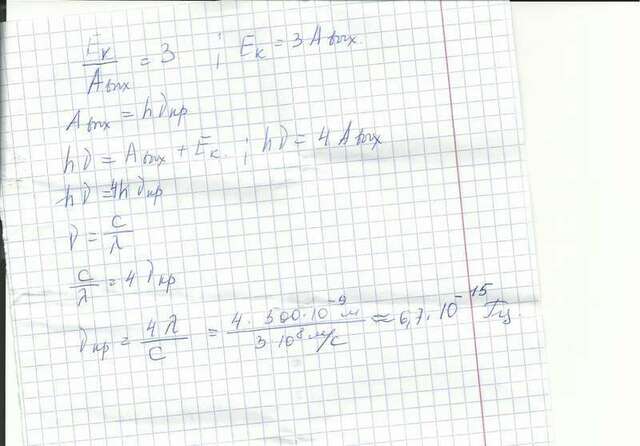 Eк/Aвых = 3 ; Eк = 3 Aвых.
Aвых = hνкр
hν = Aвых + Eк ; hν = 4 Aвых
hν = 4hνкр
ν = c/λ
c/λ = 4 νкр
νкр = 4λ/c = 4 · 500·10⁻⁹ м / 3 10⁸ м/с ≈ 6,7·10⁻¹⁵ Гц.